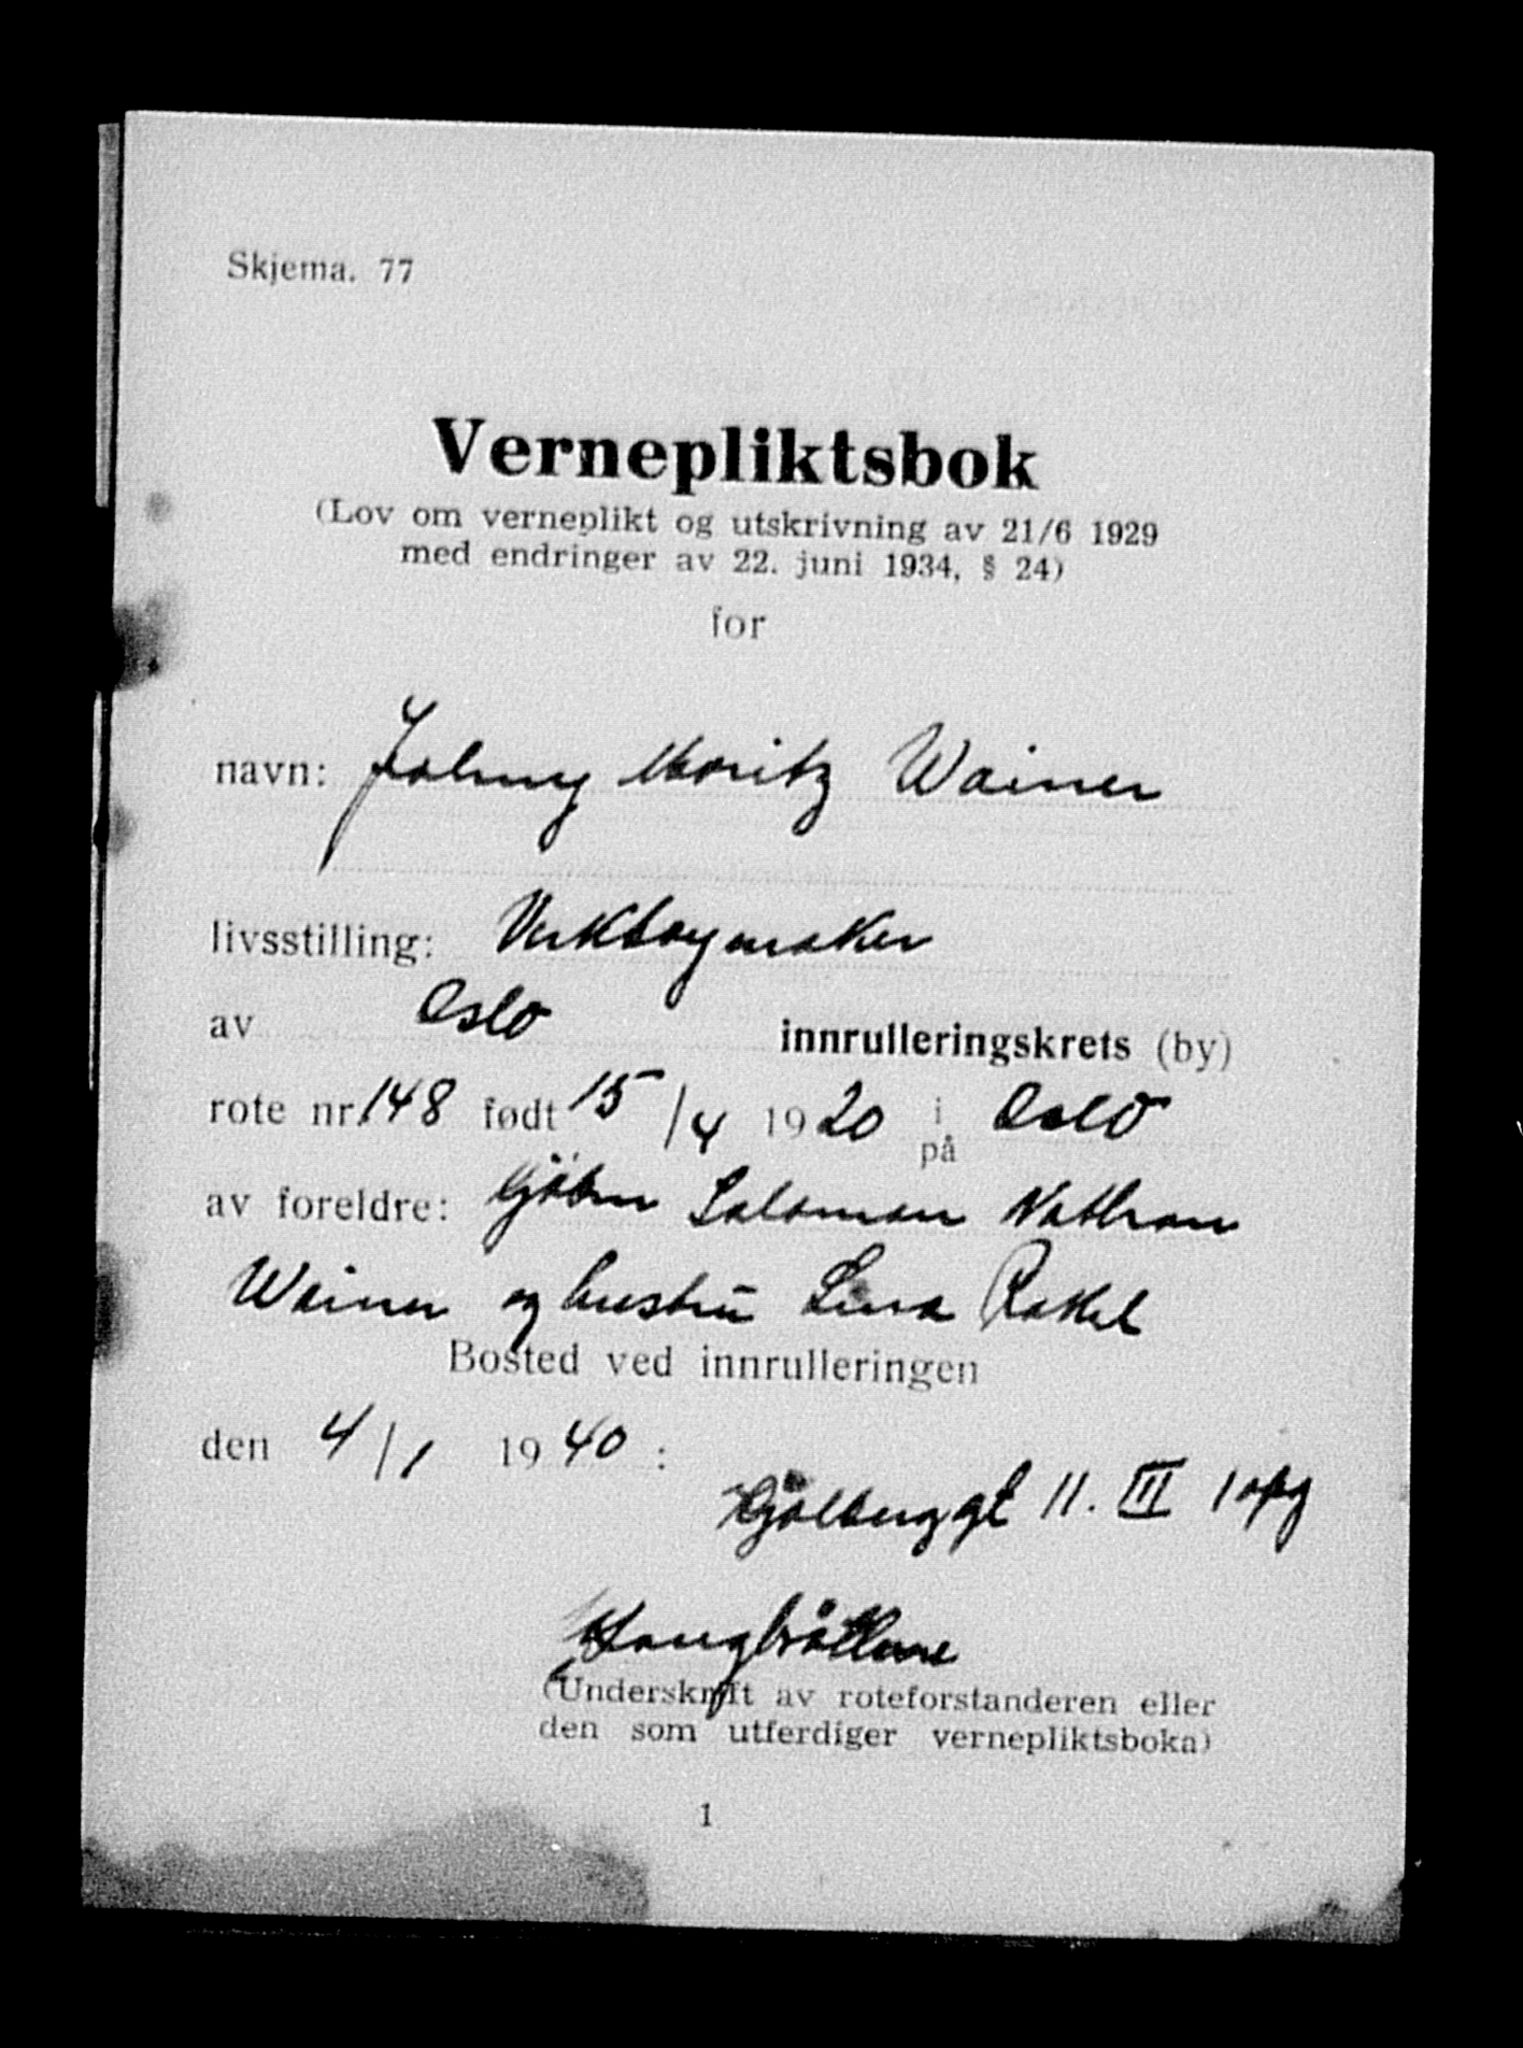 Skjema. 77
Vernepliktsbok
(Lov om verneplikt og utskrivning av 21/6 1929
med endringer av 22. juni 1934, § 24)
for
navn: Johnny Moritz Wainer
livsstilling: Verktøymaker
av Oslo innrulleringskrets (by)
rote nr. 148 født 15/4 1920 i på Oslo
av foreldre: Salomon Nathan
Wainer og hustru Lina Rakel
Bosted ved innrulleringen
den 4/1 1940:
11. III 1 opg
(Underskrift av roteforstanderen eller
den som utferdiger vernepliktsboka)
1